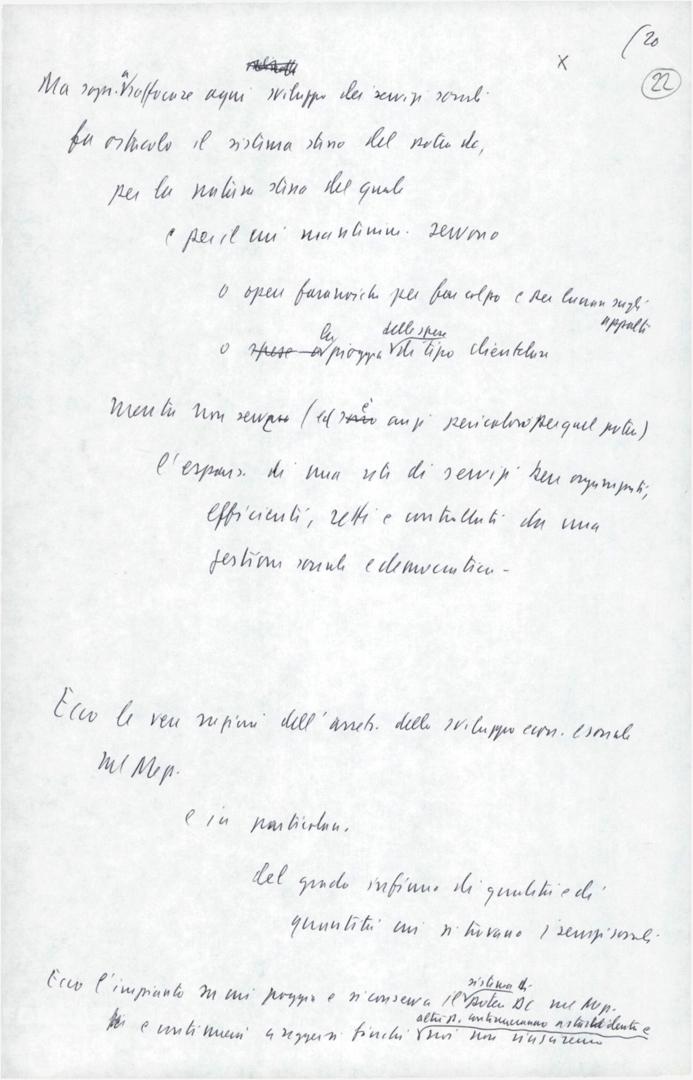 (20
x
22
Ma sopr. a soffocare ogni sviluppo dei servizi sociali
fa ostacolo il sistema stesso del potere dc,
per la natura stessa del quale
e per il cui mantenim. servono
o opere faraoniche per far colpo e per lucrare sugli appalti
o la pioggia delle spese di tipo clientelare
mentre non serve (ed è anzi pericoloso per quel potere)
l'espans. di una rete di servizi ben organizzati,
efficienti, retti e controllati da una
gestione sociale e democratica -
Ecco le vere ragioni dell'arretr. dello sviluppo econ. e sociale
nel Mezz.
e in particolare.
del grado infimo di qualità e di
quantità cui si trovano i servizi sociali.
Ecco l'impianto su cui poggia e si conserva il sistema di potere DC nel Mezz.
e continuerà a reggersi finché altri p. continueranno a starsi dentro e noi non riusciremo